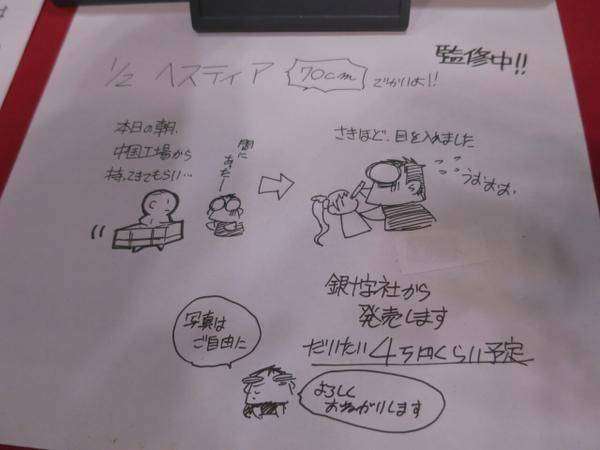 監修中!!
1/2 ヘスティア 70cm でかいよ!!
本日の朝、
中国工場から
持ってきてもらい…
間に
あったー
さきほど、目を入れました
うおおおお、
銀十字社から
発売します
だいたい4万円くらい予定
写真は
ご自由に
よろしく
おねがいします